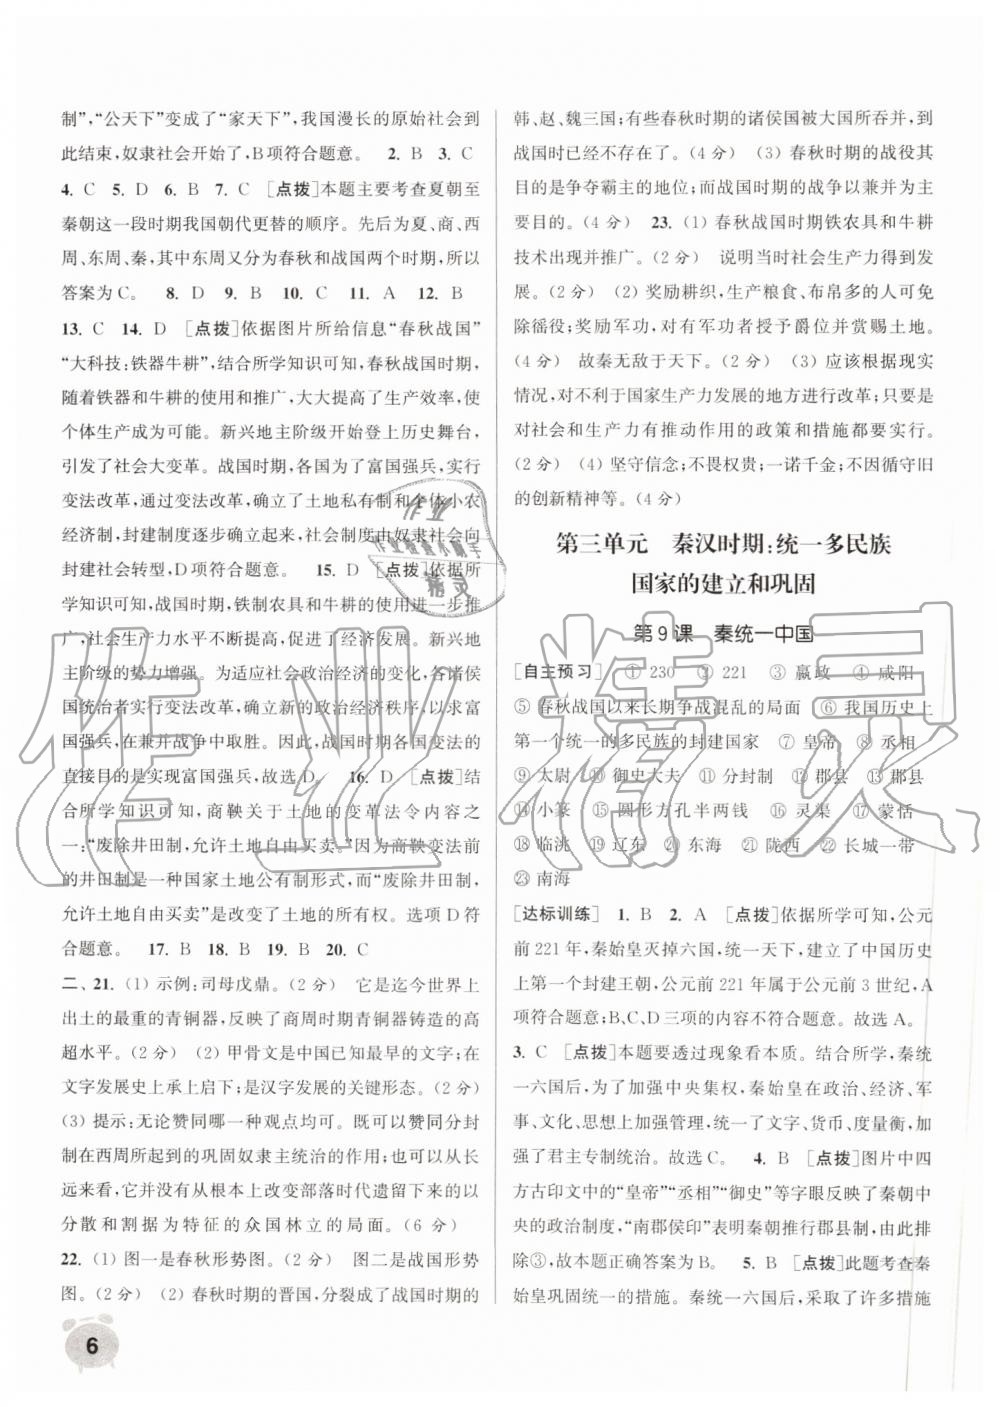 制”，“公天下”变成了“家天下”，我国漫长的原始社会到
此结束，奴隶社会开始了，B项符合题意。 2. B 3. C
4. C 5. D 6. B 7. C [点拨]本题主要考查夏朝至
秦朝这一段时期我国朝代更替的顺序。先后为夏、商、西
周、东周、秦，其中东周又分为春秋和战国两个时期，所以
答案为C。 8. D 9. B 10. C 11. A 12. B
13. C 14. D [点拨]依据图片所给信息“春秋战国”
“大科技：铁器牛耕”，结合所学知识可知，春秋战国时期，
随着铁器和牛耕的使用和推广，大大提高了生产效率，使
个体生产成为可能。新兴地主阶级开始登上历史舞台，
引发了社会大变革。战国时期，各国为了富国强兵，实行
变法改革，通过变法改革，确立了土地私有制和个体小农
经济制，封建制度逐步确立起来，社会制度由奴隶社会向
封建社会转型，D项符合题意。 15. D [点拨]依据所
学知识可知，战国时期，铁制农具和牛耕的使用进一步推
广，社会生产力水平不断提高，促进了经济发展。新兴地
主阶级的势力增强。为适应社会政治经济的变化，各诸侯
国统治者实行变法改革，确立新的政治经济秩序，以求富
国强兵，在兼并战争中取胜。因此，战国时期各国变法的
直接目的是实现富国强兵，故选D。 16. D [点拨]结
合所学知识可知，商鞅关于土地的变革法令内容之
一：“废除井田制，允许土地自由买卖。”因为商鞅变法前
的井田制是一种国家土地公有制形式，而“废除井田制，
允许土地自由买卖”改变了土地的所有权。选项D符
合题意。 17. B 18. B 19. B 20. C
二、21. (1) 示例：司母戊鼎。(2分) 它是迄今世界上
出土的最重的青铜器，反映了商周时期青铜器铸造的高
超水平。(2分) (2) 甲骨文是中国已知最早的文字；在
文字发展史上承上启下；是汉字发展的关键形态。(2分)
(3) 提示：无论赞同哪一种观点均可。既可以赞同分封
制在西周所起到的巩固奴隶主统治的作用；也可以从长
远来看，它并没有从根本上改变部落时代遗留下来的以
分散和割据为特征的众国林立的局面。(6分)
22. (1) 图一是春秋形势图。(2分) 图二是战国形势
图。(2分) (2) 春秋时期的晋国，分裂成了战国时期的
韩、赵、魏三国；有些春秋时期的诸侯国被大国所吞并，到
战国时已经不存在了。(4分) (3) 春秋时期的战役其
目的是争夺霸主的地位；而战国时期的战争以兼并为主
要目的。(4分) 23. (1) 春秋战国时期铁农具和牛耕
技术出现并推广。(2分) 说明当时社会生产力得到发
展。(2分) (2) 奖励耕织，生产粮食、布帛多的人可免
除徭役；奖励军功，对有军功者授予爵位并赏赐土地。
(4分) 故秦无敌于天下。(2分) (3) 应该根据现实
情况，对不利于国家生产力发展的地方进行改革；只要是
对社会和生产力有推动作用的政策和措施都要实行。
(2分) (4) 坚守信念；不畏权贵；一诺千金；不因循守旧
的创新精神等。(4分)
第三单元 秦汉时期：统一多民族
国家的建立和巩固
第9课 秦统一中国
[自主预习] ① 230 ② 221 ③ 嬴政 ④ 咸阳
⑤ 春秋战国以来长期争战混乱的局面 ⑥ 我国历史上
第一个统一的多民族的封建国家 ⑦ 皇帝 ⑧ 丞相
⑨ 太尉 ⑩ 御史大夫 ⑪ 分封制 ⑫ 郡县 ⑬ 郡县
⑭ 小篆 ⑮ 圆形方孔半两钱 ⑯ 灵渠 ⑰ 蒙恬
⑱ 临洮 ⑲ 辽东 ⑳ 东海 ㉑ 陇西 ㉒ 长城一带
㉓ 南海
[达标训练] 1. B 2. A [点拨]依据所学可知，公元
前221年，秦始皇灭掉六国，统一天下，建立了中国历史
上第一个封建王朝，公元前221年属于公元前3世纪，A
项符合题意；B、C、D三项的内容不符合题意。故选A。
3. C [点拨]本题要透过现象看本质。结合所学，秦统
一六国后，为了加强中央集权，秦始皇在政治、经济、军
事、文化、思想上采取措施，统一了文字、货币、度量衡，加
强了君主专制统治。故选C。 4. B [点拨]图片中四
方古印文中的“皇帝”“丞相”“御史”等字眼反映了秦朝中
央的政治制度，“南郡侯印”表明秦朝推行郡县制，由此排
除③，故本题正确答案为B。 5. B [点拨]此题考查秦
始皇巩固统一的措施。秦统一六国后，采取了许多措施
6
作业
作业检查小助手
精灵
作业精灵